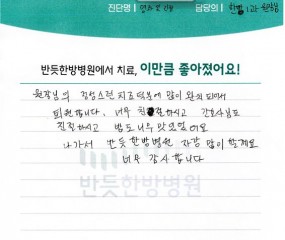 진단명 담당의 한방 1과 원장님
반듯한방병원에서 치료, 이만큼 좋아졌어요!
원장님의 정성스런 치료 덕분에 많이 완쾌 되어서
퇴원합니다. 너무 친절하시고 간호사님도
친절하시고 밥도 너무 맛있었어요
나가서 반듯한방병원 자랑 많이 할게요
너무 감사합니다
반듯한방병원